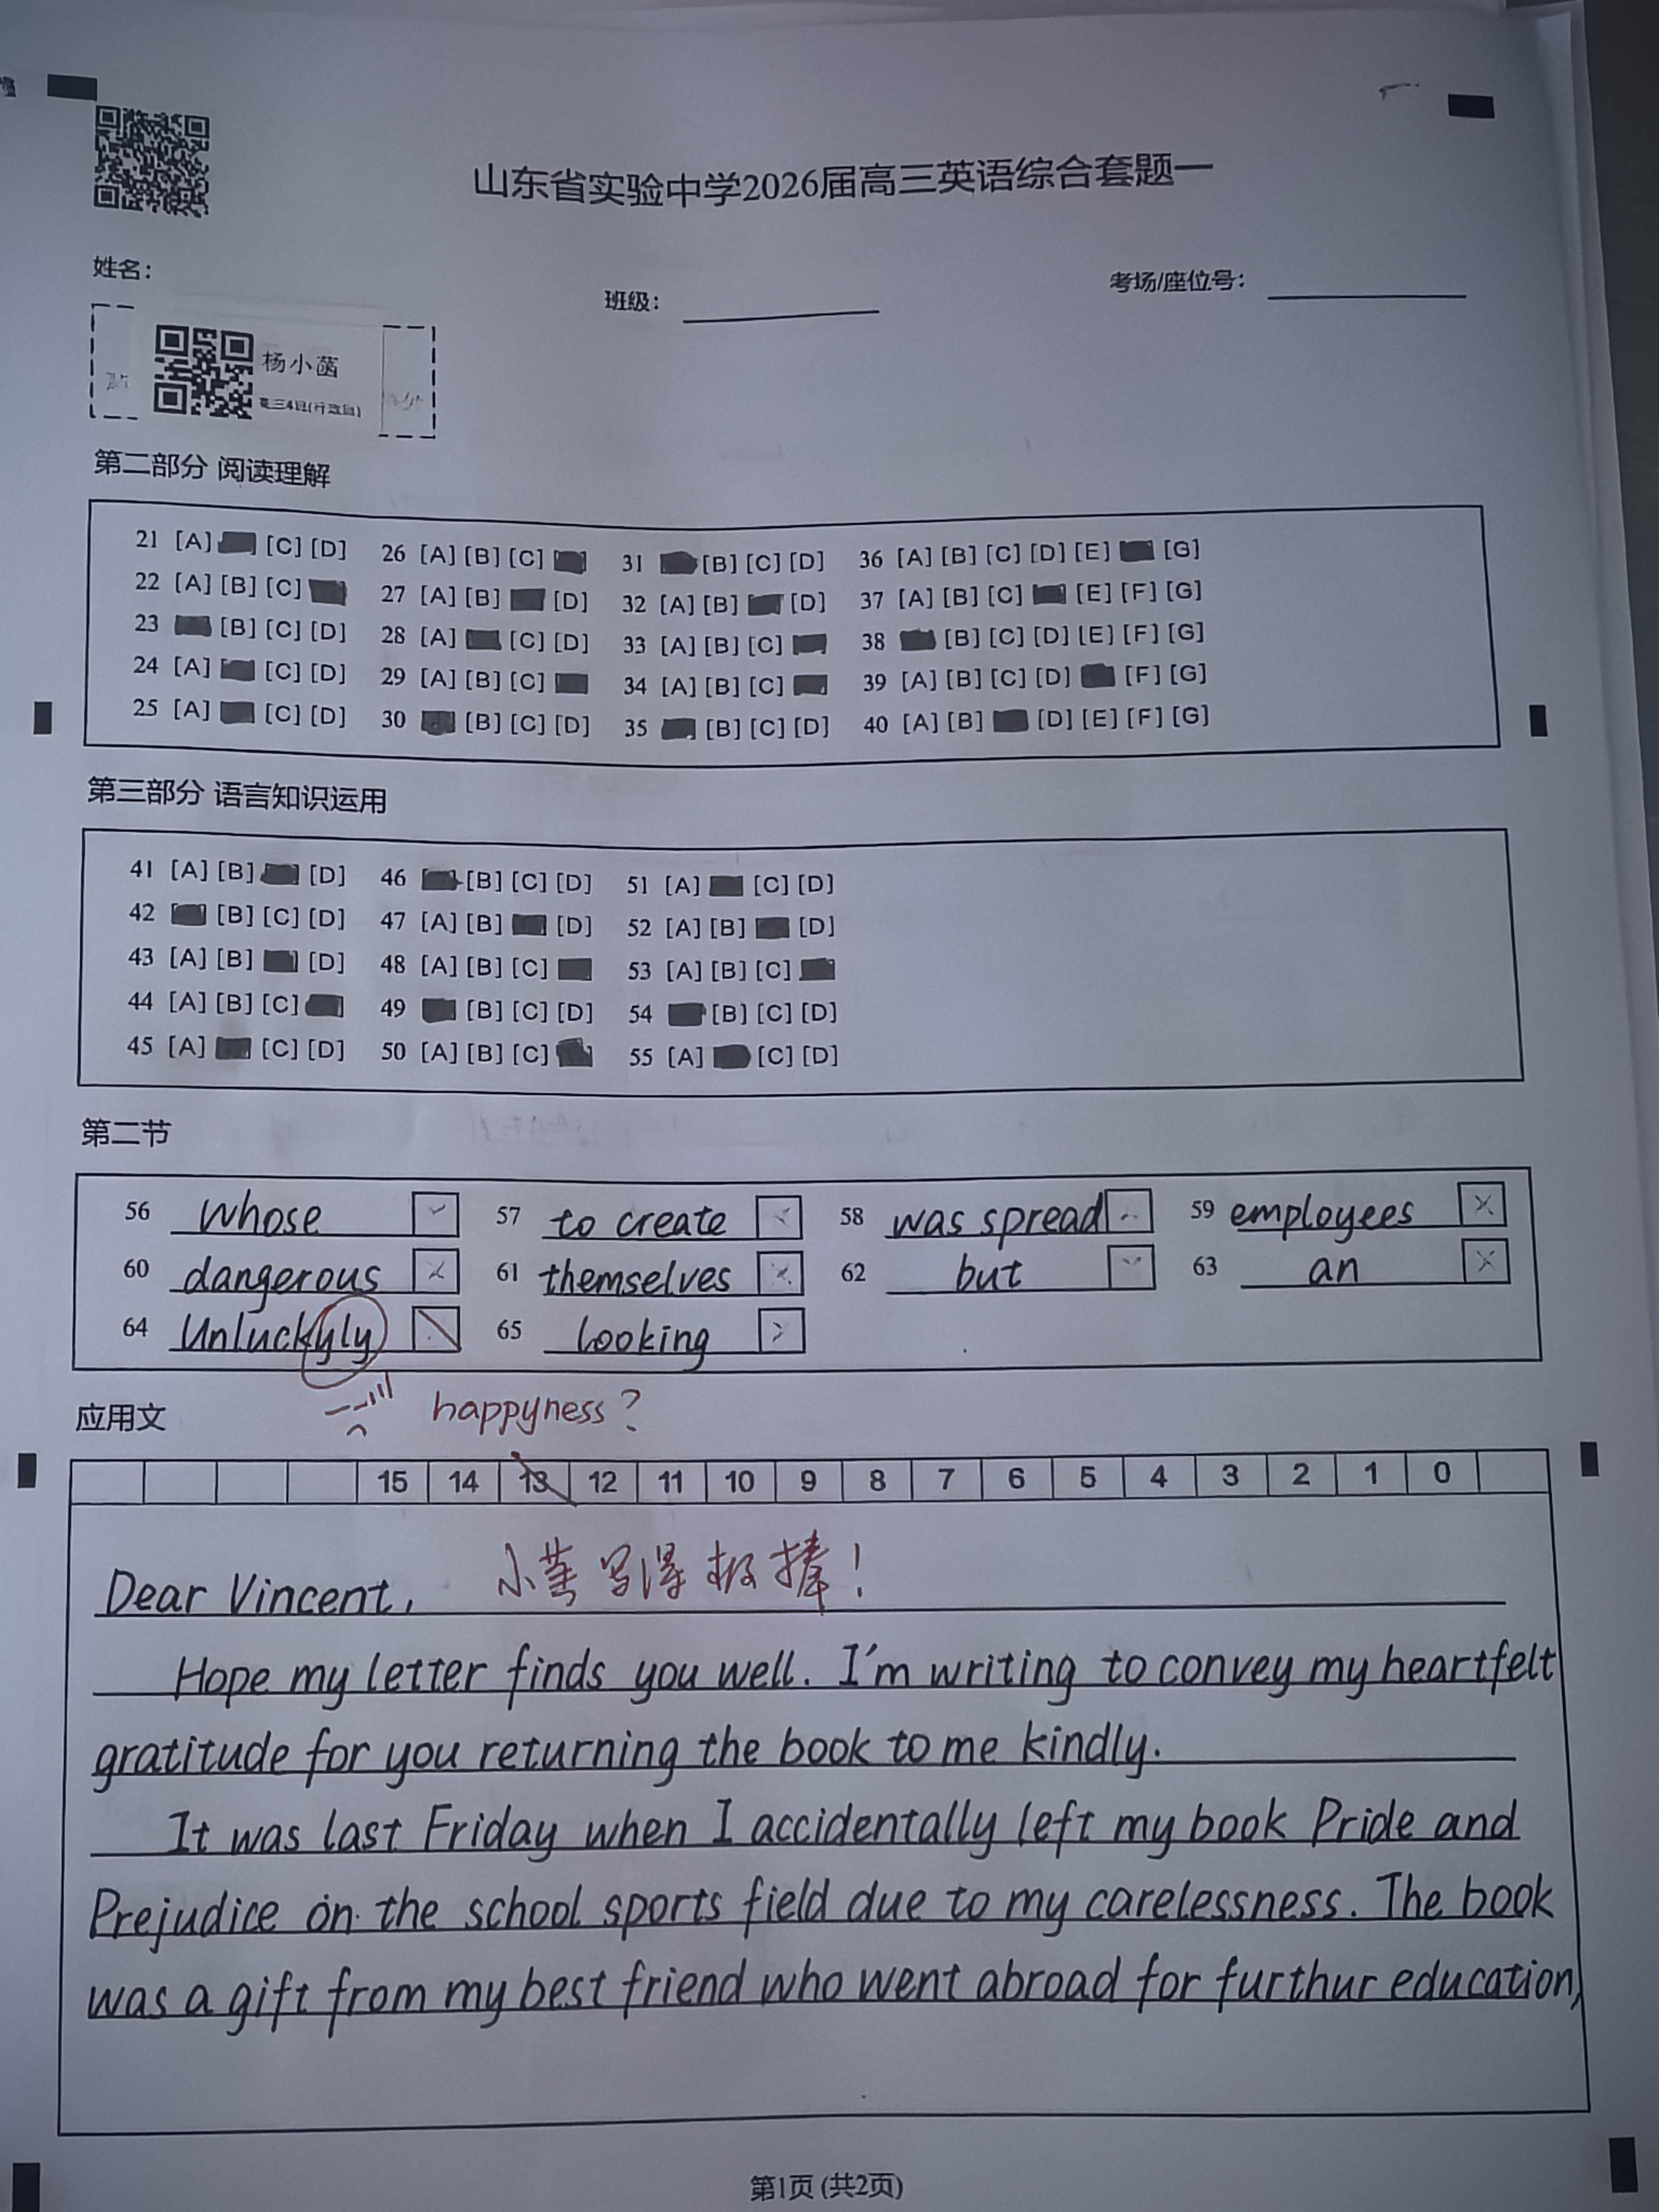 山东省实验中学2026届高三英语综合套题一
姓名：
班级：
考场/座位号：
杨小菡
高三4班(行政班)
第二部分 阅读理解
21 [A] [C] [D] 26 [A] [B] [C] 31 [B] [C] [D] 36 [A] [B] [C] [D] [E] [G]
22 [A] [B] [C] 27 [A] [B] [D] 32 [A] [B] [D] 37 [A] [B] [C] [E] [F] [G]
23 [B] [C] [D] 28 [A] [C] [D] 33 [A] [B] [C] 38 [B] [C] [D] [E] [F] [G]
24 [A] [C] [D] 29 [A] [B] [C] 34 [A] [B] [C] 39 [A] [B] [C] [D] [F] [G]
25 [A] [C] [D] 30 [B] [C] [D] 35 [B] [C] [D] 40 [A] [B] [D] [E] [F] [G]
第三部分 语言知识运用
41 [A] [B] [D] 46 [B] [C] [D] 51 [A] [C] [D]
42 [B] [C] [D] 47 [A] [B] [D] 52 [A] [B] [D]
43 [A] [B] [D] 48 [A] [B] [C] 53 [A] [B] [C]
44 [A] [B] [C] 49 [B] [C] [D] 54 [B] [C] [D]
45 [A] [C] [D] 50 [A] [B] [C] 55 [A] [C] [D]
第二节
56 whose 57 to create 58 was spread 59 employees
60 dangerous 61 themselves 62 but 63 an
64 Unluckyly 65 looking
happyness?
应用文
15 14 13 12 11 10 9 8 7 6 5 4 3 2 1 0
小菡写得极棒！
Dear Vincent,
Hope my letter finds you well. I'm writing to convey my heartfelt
gratitude for you returning the book to me kindly.
It was last Friday when I accidentally left my book Pride and
Prejudice on the school sports field due to my carelessness. The book
was a gift from my best friend who went abroad for furthur education,
第1页 (共2页)